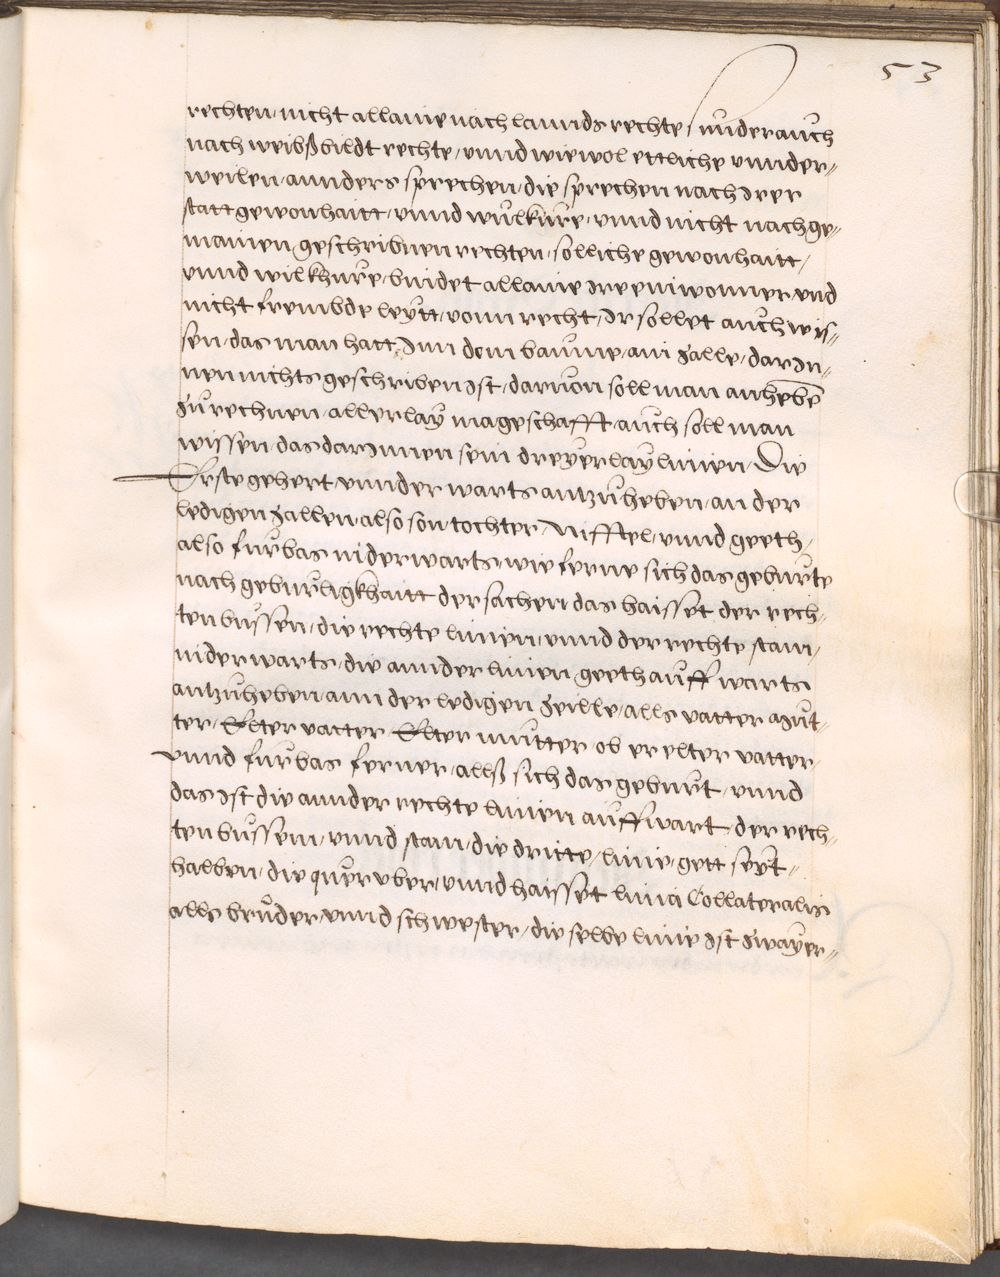 53
rechten, nicht allaine nach lannds rechte, sunder auch
nach weibßbildt rechte, unnd wiewol ettliche unnder„
weilen, annders sprechen, die sprechen nach Irer
statt gewonhaitt, unnd wulkure, unnd nicht nach ge„
mainen geschribnen rechten, solliche gewonhaitt,
unnd wilkhure, bindet allaine Ire einwonner und
nicht frembde leytt, vonn recht, Ir sollet auch wis„
sen, das man hatt, Inn dem baume, ain zalle, dar In„
nen nichts geschriben Ist, daruon soll man anheben
zu rechnen, allerlay mageschafft, auch soll man
wissen, das dar Innen sein dreyerlay linien, Die
Erste gehert, unnder warts antzuheben, an der
ledigen zallen, also son tochter Nifftel, unnd geeth,
also furbas niderwarts, wie ferne sich das geburte
nach geburligkhaitt der sachen, das haisset der rech„
ten bussen, die rechte linien, unnd der rechte stam,
niderwarts, die annder linien, geeth auffwarts
antzuheben, ann der ledigen zeille, alls vatter Mut„
ter, Elter vatter, Elter mutter, ob er elter vatter,
unnd furbas ferner, allß sich das geburt, unnd
das Ist die annder rechte linien auffwart, der rech„
ten bussem, unnd stam, die dritte, linie, gett seyt„
halben, die quer uber, unnd haisset linia Collateralis
alls bruder unnd schwester, die selbe linie Ist zwayer„